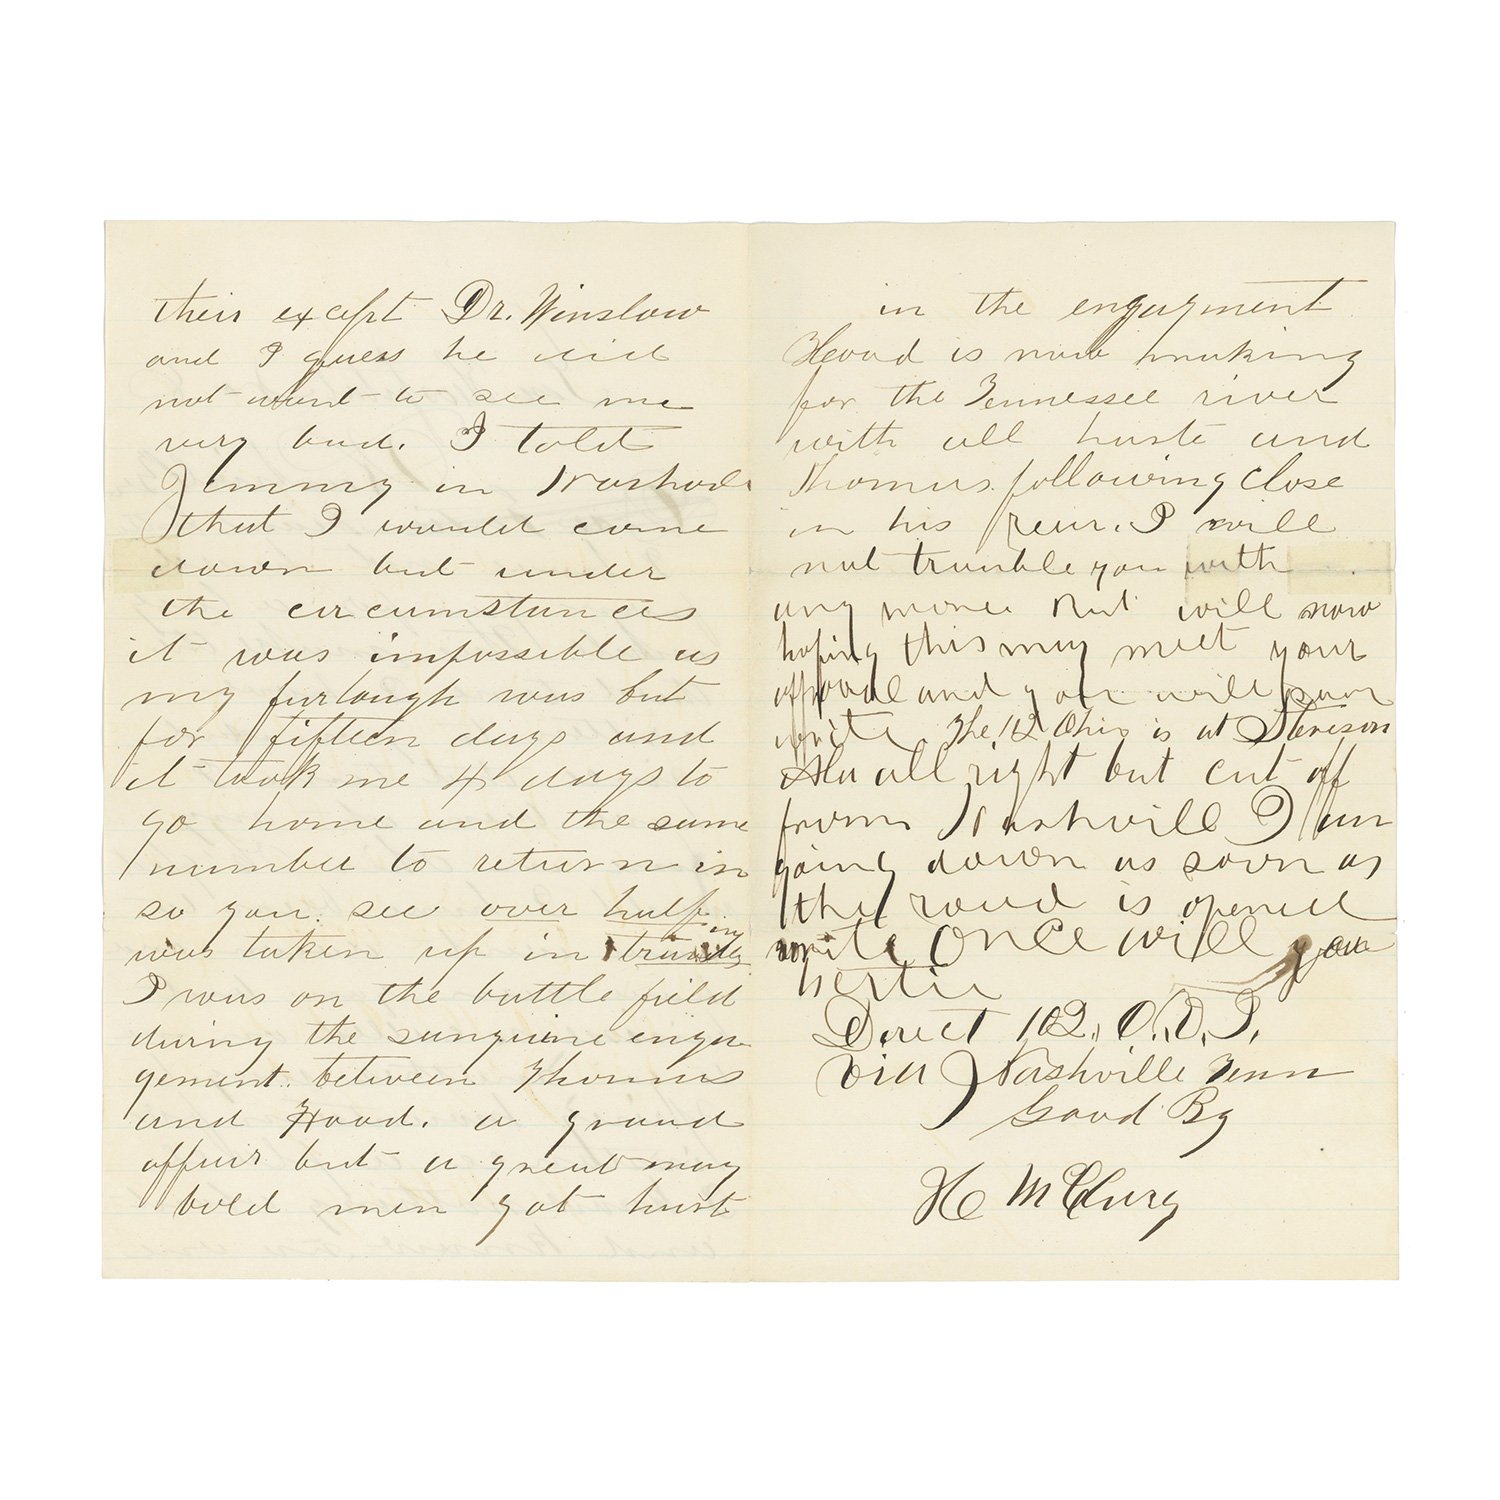 their except Dr. Winslow
and I guess he did
not want to see me
very bad. I told
Jemmy in Nashvile
that I would come
down but under
the circumstances
it was impossible as
my furlough was but
for fifteen days and
it took me 4 days to
go home and the same
number to return in
so you see over half
was taken up in traveling
I was on the battle field
during the sanguine enga
gement between Thomas
and Hood. a grand
affair but a great many
bold men got hurt
in the engagment
Hood is now making
for the Tennessee river
with all haste and
Thomas following close
in his rear. I will
not trouble you with
any more but will now
hoping this may meet your
approval and you will soon
write The 102 Ohio is at Stevison
Ala all right but cut off
from Nashville I am
going down as soon as
the road is opened
write once will you
Direct 102. O. V. I.
Via Nashville Tenn
Good By
H McClurg